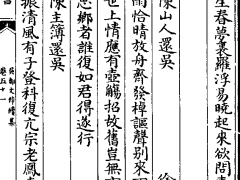 生春夢裏羅浮易曉起來欲問
陳山人還吳
雨恰晴放舟齊發棹謳聲別來
世上情應有壺觴招故舊豈無
忘鄉者誰復如君得遂行
陳主簿還吳
振清風有子登科復亢宗老鳳